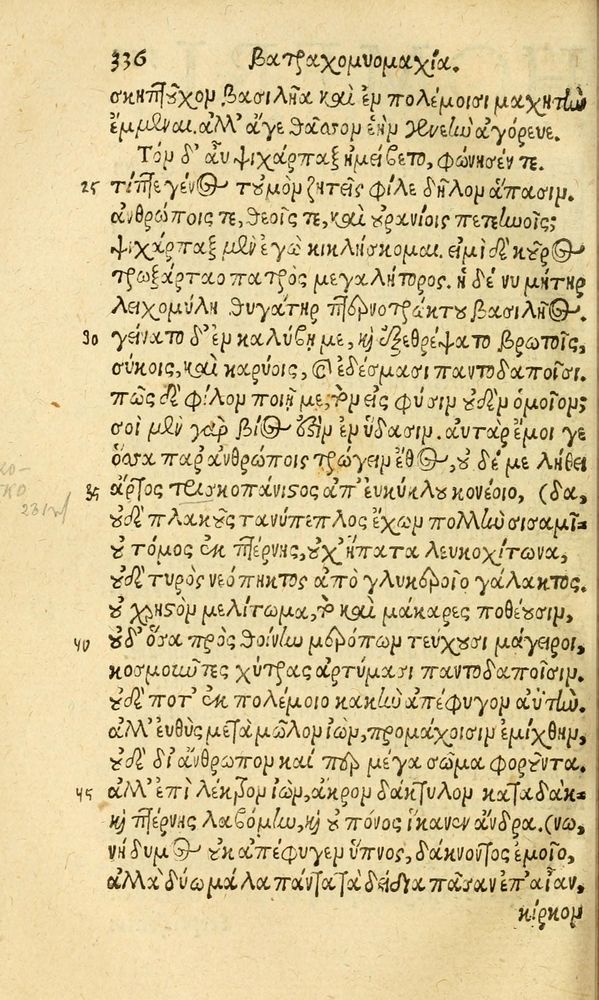 336 βατραχομυομαχία.
σκηπτοῦχον βασιλῆα καὶ ἐν πολέμοισι μαχητὼ
ἔμμεναι. ἀλλ' ἄγε θᾶσσον ἑὴν γενεὼ ἀγόρευε.
Τὸν δ' αὖ ψιχάρπαξ ἠμείβετο, φώνησέν τε.
25 τίπτε γένος τοὐμὸν ζητεῖς φίλε δῆλον ἅπασιν.
ἀνθρώποις τε, θεοῖς τε, καὶ οὐρανίοις πετεωοῖς;
ψιχάρπαξ μὲν ἐγὼ κικλήσκομαι. εἰμὶ δὲ κοῦρος
τρωξάρταο πατρὸς μεγαλήτορος. ἡ δέ νυ μήτηρ
λειχομύλη θυγάτηρ πτερνοτρώκτου βασιλῆος.
30 γείνατο δ' ἐν καλύβῃ με, καὶ ἐξεθρέψατο βρωτοῖς,
σύκοις, καὶ καρύοις, καὶ ἐδέσμασι παντοδαποῖσι.
πῶς δὲ φίλον ποιῇ με, τὸν εἰς φύσιν οὐδὲν ὁμοῖον;
σοὶ μὲν γὰρ βίος ἐστὶν ἐν ὕδασιν. αὐτὰρ ἔμοι γε
ὅσσα παρ' ἀνθρώποις τρώγειν ἔθος, οὐ δέ με λήθει
35 ἄρτος τρισκοπάνιστος ἀπ' εὐκύκλου κονέοιο, (δα,
οὐδὲ πλακοῦς τανύπεπλος ἔχων πολλὼ σισαμί-
οὐ τόμος ἐκ πτέρνης, οὐχ ἥπατα λευκοχίτωνα,
οὐδὲ τυρὸς νεόπηκτος ἀπὸ γλυκεροῖο γάλακτος.
οὐ χρηστὸν μελίτωμα, τὸ καὶ μάκαρες ποθέουσιν,
40 οὐδ' ὅσα πρὸς θοίνὼ μερόπων τεύχουσι μάγειροι,
κοσμοιῶτες χύτρας ἀρτύμασι παντοδαποῖσιν.
οὐδέ ποτ' ἐκ πολέμοιο κακὼ ἀπέφυγον ἀϋτὼ.
ἀλλ' εὐθὺς μετὰ μῶλον ἰὼν, προμάχοισιν ἐμίχθην,
οὐδὲ δι' ἄνθρωπον καί περ μέγα σῶμα φοροῦντα.
45 ἀλλ' ἐπὶ λέκτρον ἰὼν, ἄκρον δάκτυλον καταδάκ-
καὶ πτέρνης λαβόμὼ, καὶ οὐ πόνος ἵκανεν ἄνδρα. (νω,
νήδυμος οὐκ ἀπέφυγεν ὕπνος, δάκνοντος ἐμοῖο,
ἀλλὰ δύω μάλα πάντα τὰ δείδια πᾶσαν ἐπ' αἶαν,
κίρκον